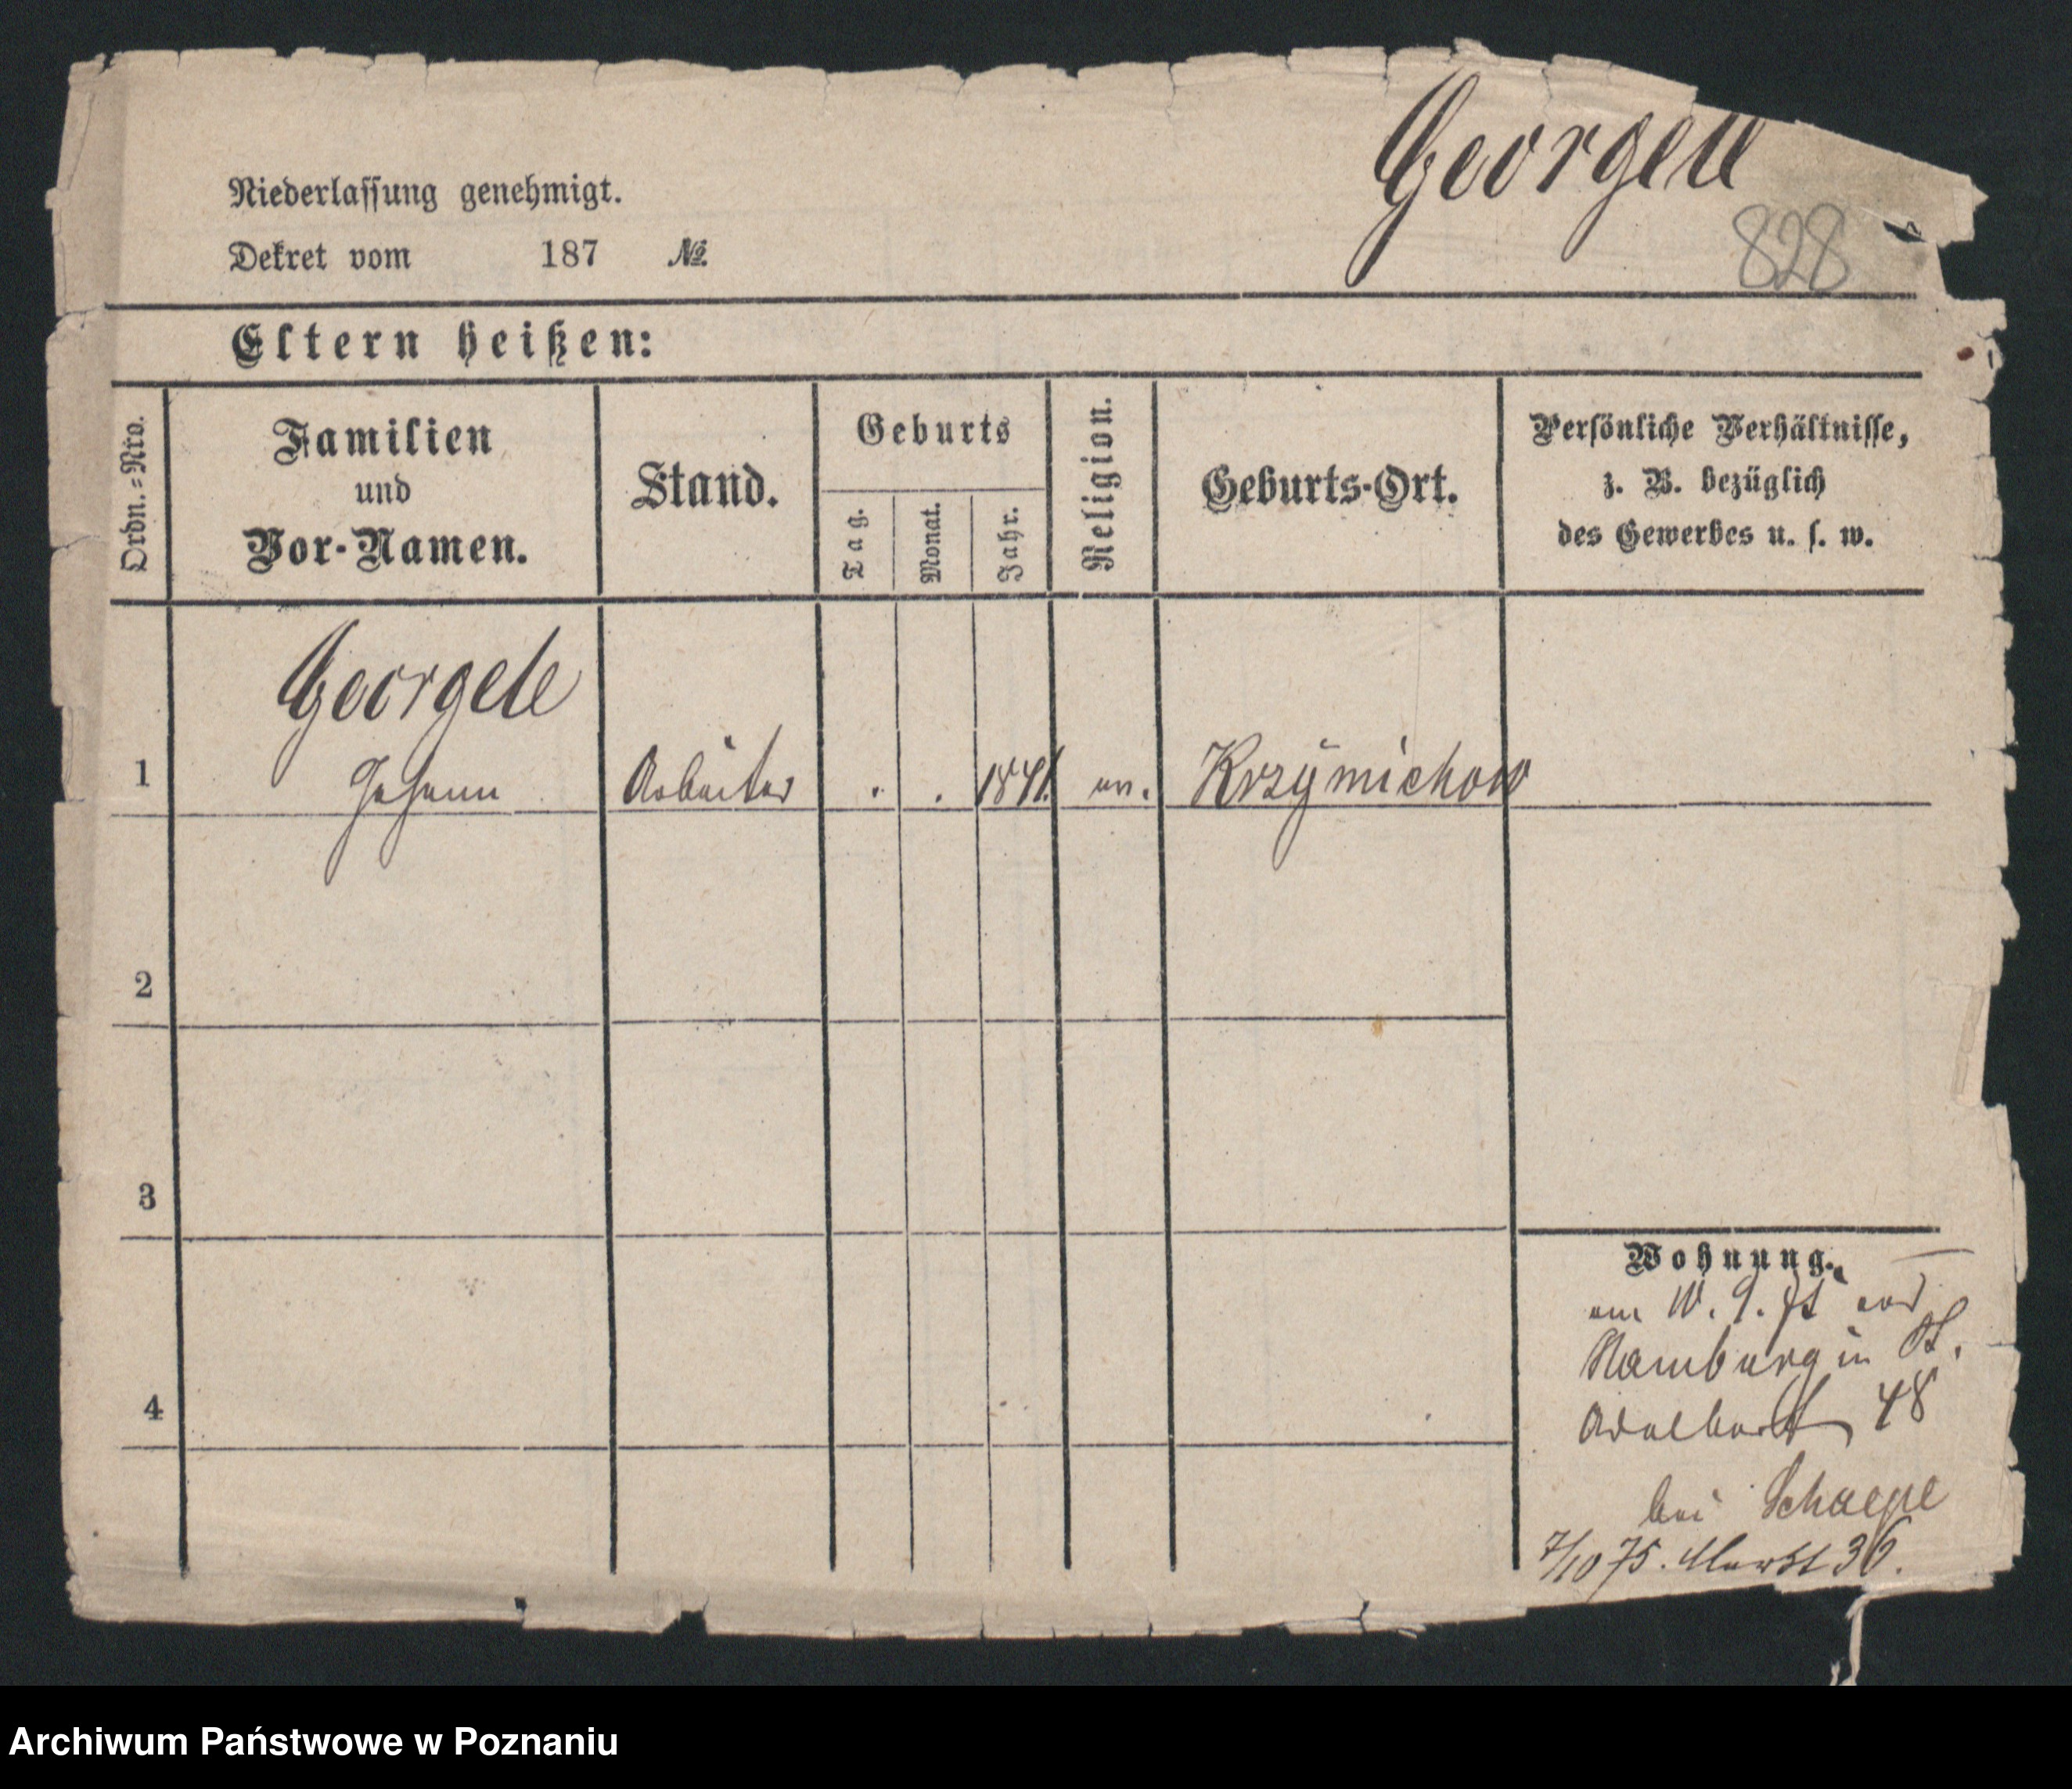 Georgell
828
Niederlassung genehmigt.
Dekret vom 187 No.
Eltern heißen:
Ordn.-Nro.
Familien
und
Vor-Namen.
Stand.
Geburts
Tag.
Monat.
Jahr.
Religion.
Geburts-Ort.
Persönliche Verhältnisse,
z. B. bezüglich
des Gewerbes u. s. w.
Georgele
1 Johann Arbeiter . . 1841. Krzymichow
2
3
Wohnung.
am 10. 9.
Namburg in St.
4
Adalbert 48
bei Schaepe
7/10 75. Markt 36.
Archiwum Państwowe w Poznaniu